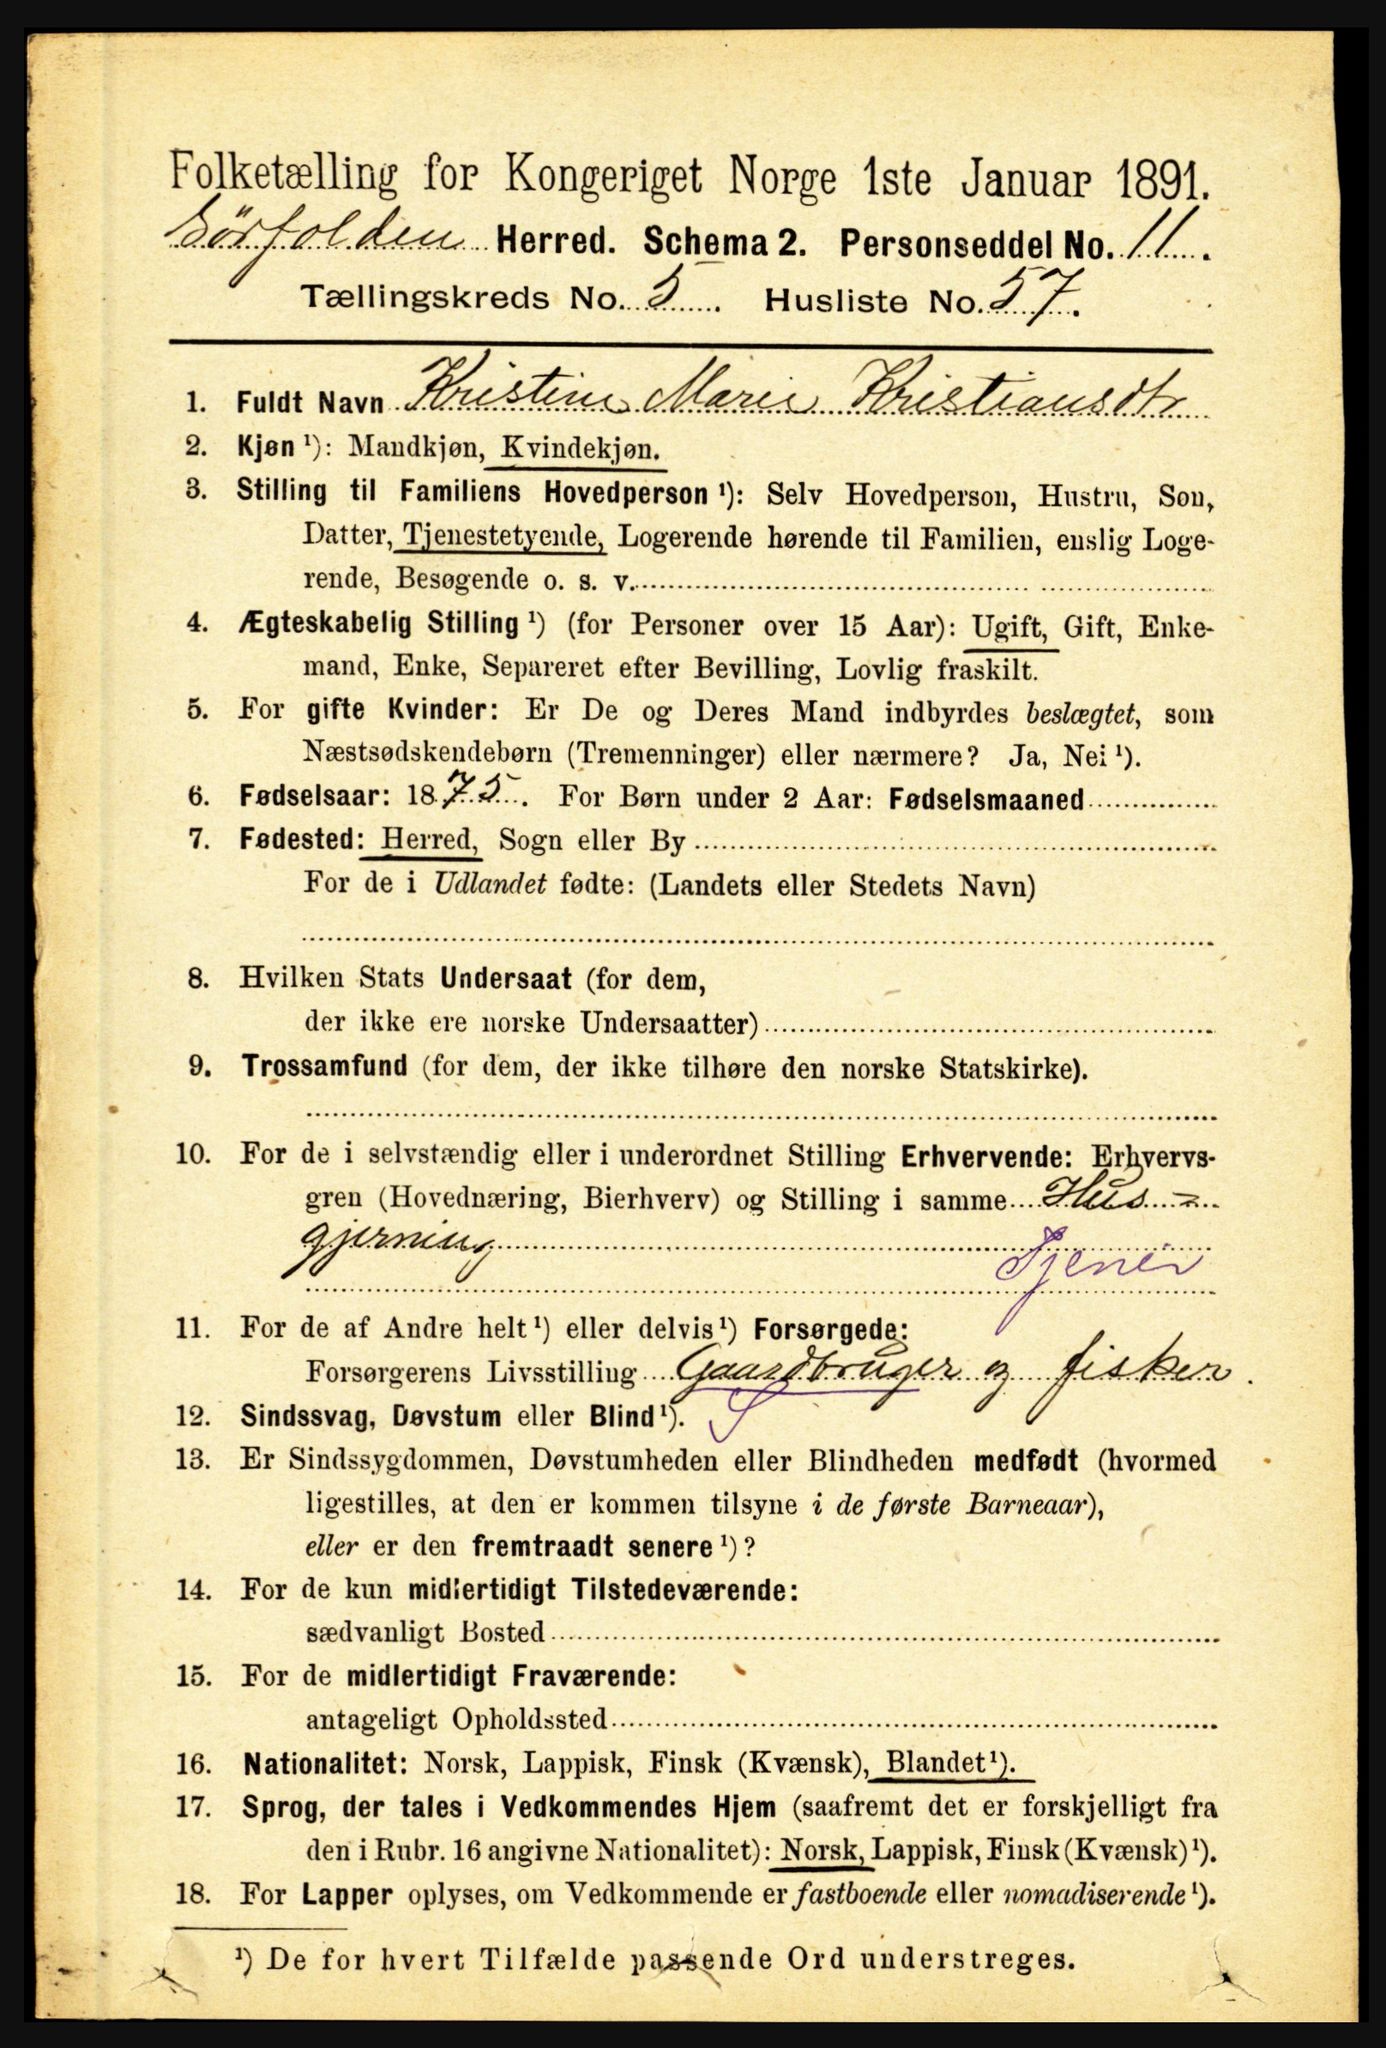 Folketælling for Kongeriget Norge 1ste Januar 1891.
Sörfolden Herred. Schema 2. Personseddel No. 11.
Tællingskreds No. 5. Husliste No. 57.
1. Fuldt Navn Kristine Marie Kristiansdtr
2. Kjøn ¹): Mandkjøn, Kvindekjøn.
3. Stilling til Familiens Hovedperson ¹): Selv Hovedperson, Hustru, Søn,
Datter, Tjenestetyende, Logerende hørende til Familien, enslig Loge-
rende, Besøgende o. s. v.
4. Ægteskabelig Stilling ¹) (for Personer over 15 Aar): Ugift, Gift, Enke-
mand, Enke, Separeret efter Bevilling, Lovlig fraskilt.
5. For gifte Kvinder: Er De og Deres Mand indbyrdes beslægtet, som
Næstsødskendebørn (Tremenninger) eller nærmere? Ja, Nei ¹).
6. Fødselsaar: 1875. For Børn under 2 Aar: Fødselsmaaned
7. Fødested: Herred, Sogn eller By
For de i Udlandet fødte: (Landets eller Stedets Navn)
8. Hvilken Stats Undersaat (for dem,
der ikke ere norske Undersaatter)
9. Trossamfund (for dem, der ikke tilhøre den norske Statskirke).
10. For de i selvstændig eller i underordnet Stilling Erhvervende: Erhvervs-
gren (Hovednæring, Bierhverv) og Stilling i samme Hus-
gjerning
Tjener
11. For de af Andre helt ¹) eller delvis ¹) Forsørgede:
Forsørgerens Livsstilling Gaardbruger og fisker.
12. Sindssvag, Døvstum eller Blind ¹). S
13. Er Sindssygdommen, Døvstumheden eller Blindheden medfødt (hvormed
ligestilles, at den er kommen tilsyne i de første Barneaar),
eller er den fremtraadt senere ¹)?
14. For de kun midlertidigt Tilstedeværende:
sædvanligt Bosted
15. For de midlertidigt Fraværende:
antageligt Opholdssted
16. Nationalitet: Norsk, Lappisk, Finsk (Kvænsk), Blandet ¹).
17. Sprog, der tales i Vedkommendes Hjem (saafremt det er forskjelligt fra
den i Rubr. 16 angivne Nationalitet): Norsk, Lappisk, Finsk (Kvænsk) ¹).
18. For Lapper oplyses, om Vedkommende er fastboende eller nomadiserende ¹).
¹) De for hvert Tilfælde passende Ord understreges.